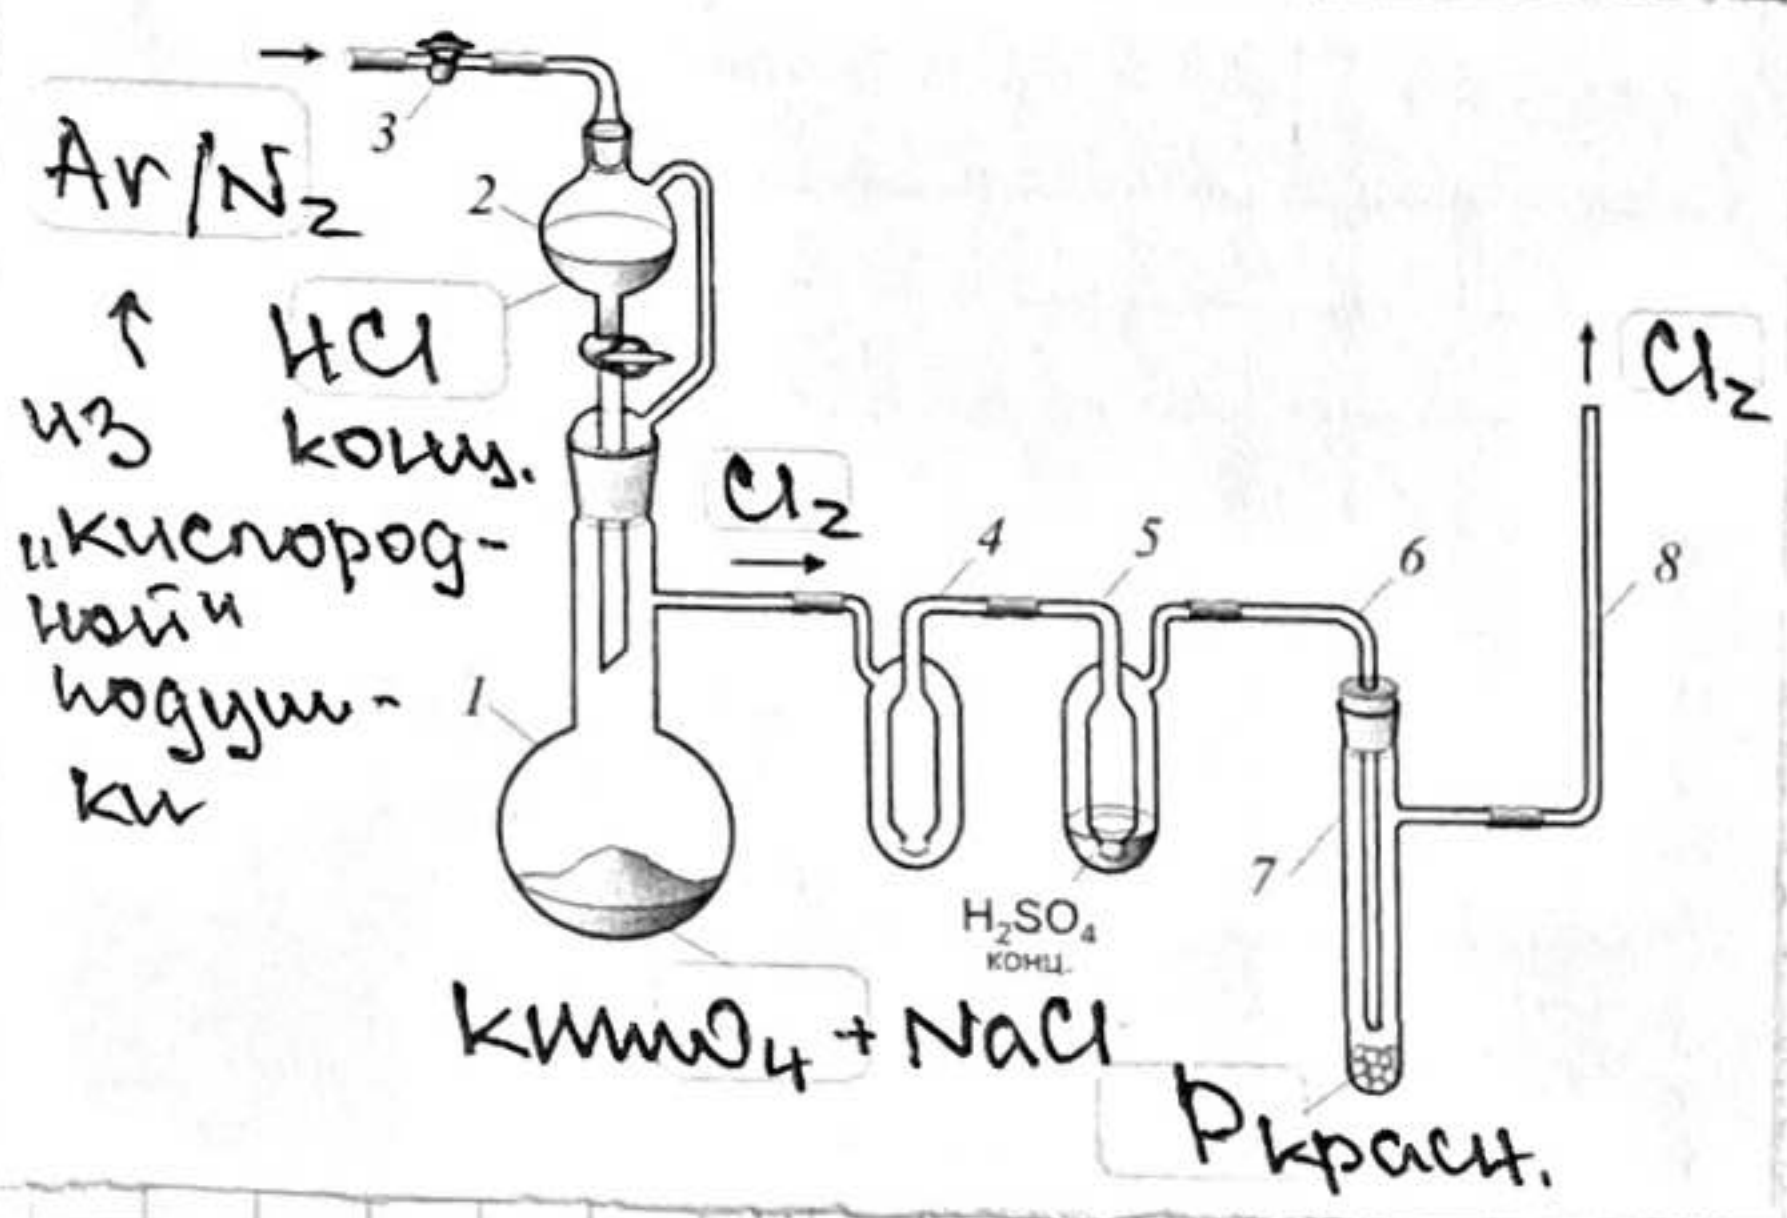 3
Ar/N₂
2
↑
HCl
из
конц.
„кислород-
ной“
подуш-
ки
Cl₂
Cl₂
4
5
6
8
1
7
H₂SO₄
конц.
KMnO₄ + NaCl
Pкрасн.